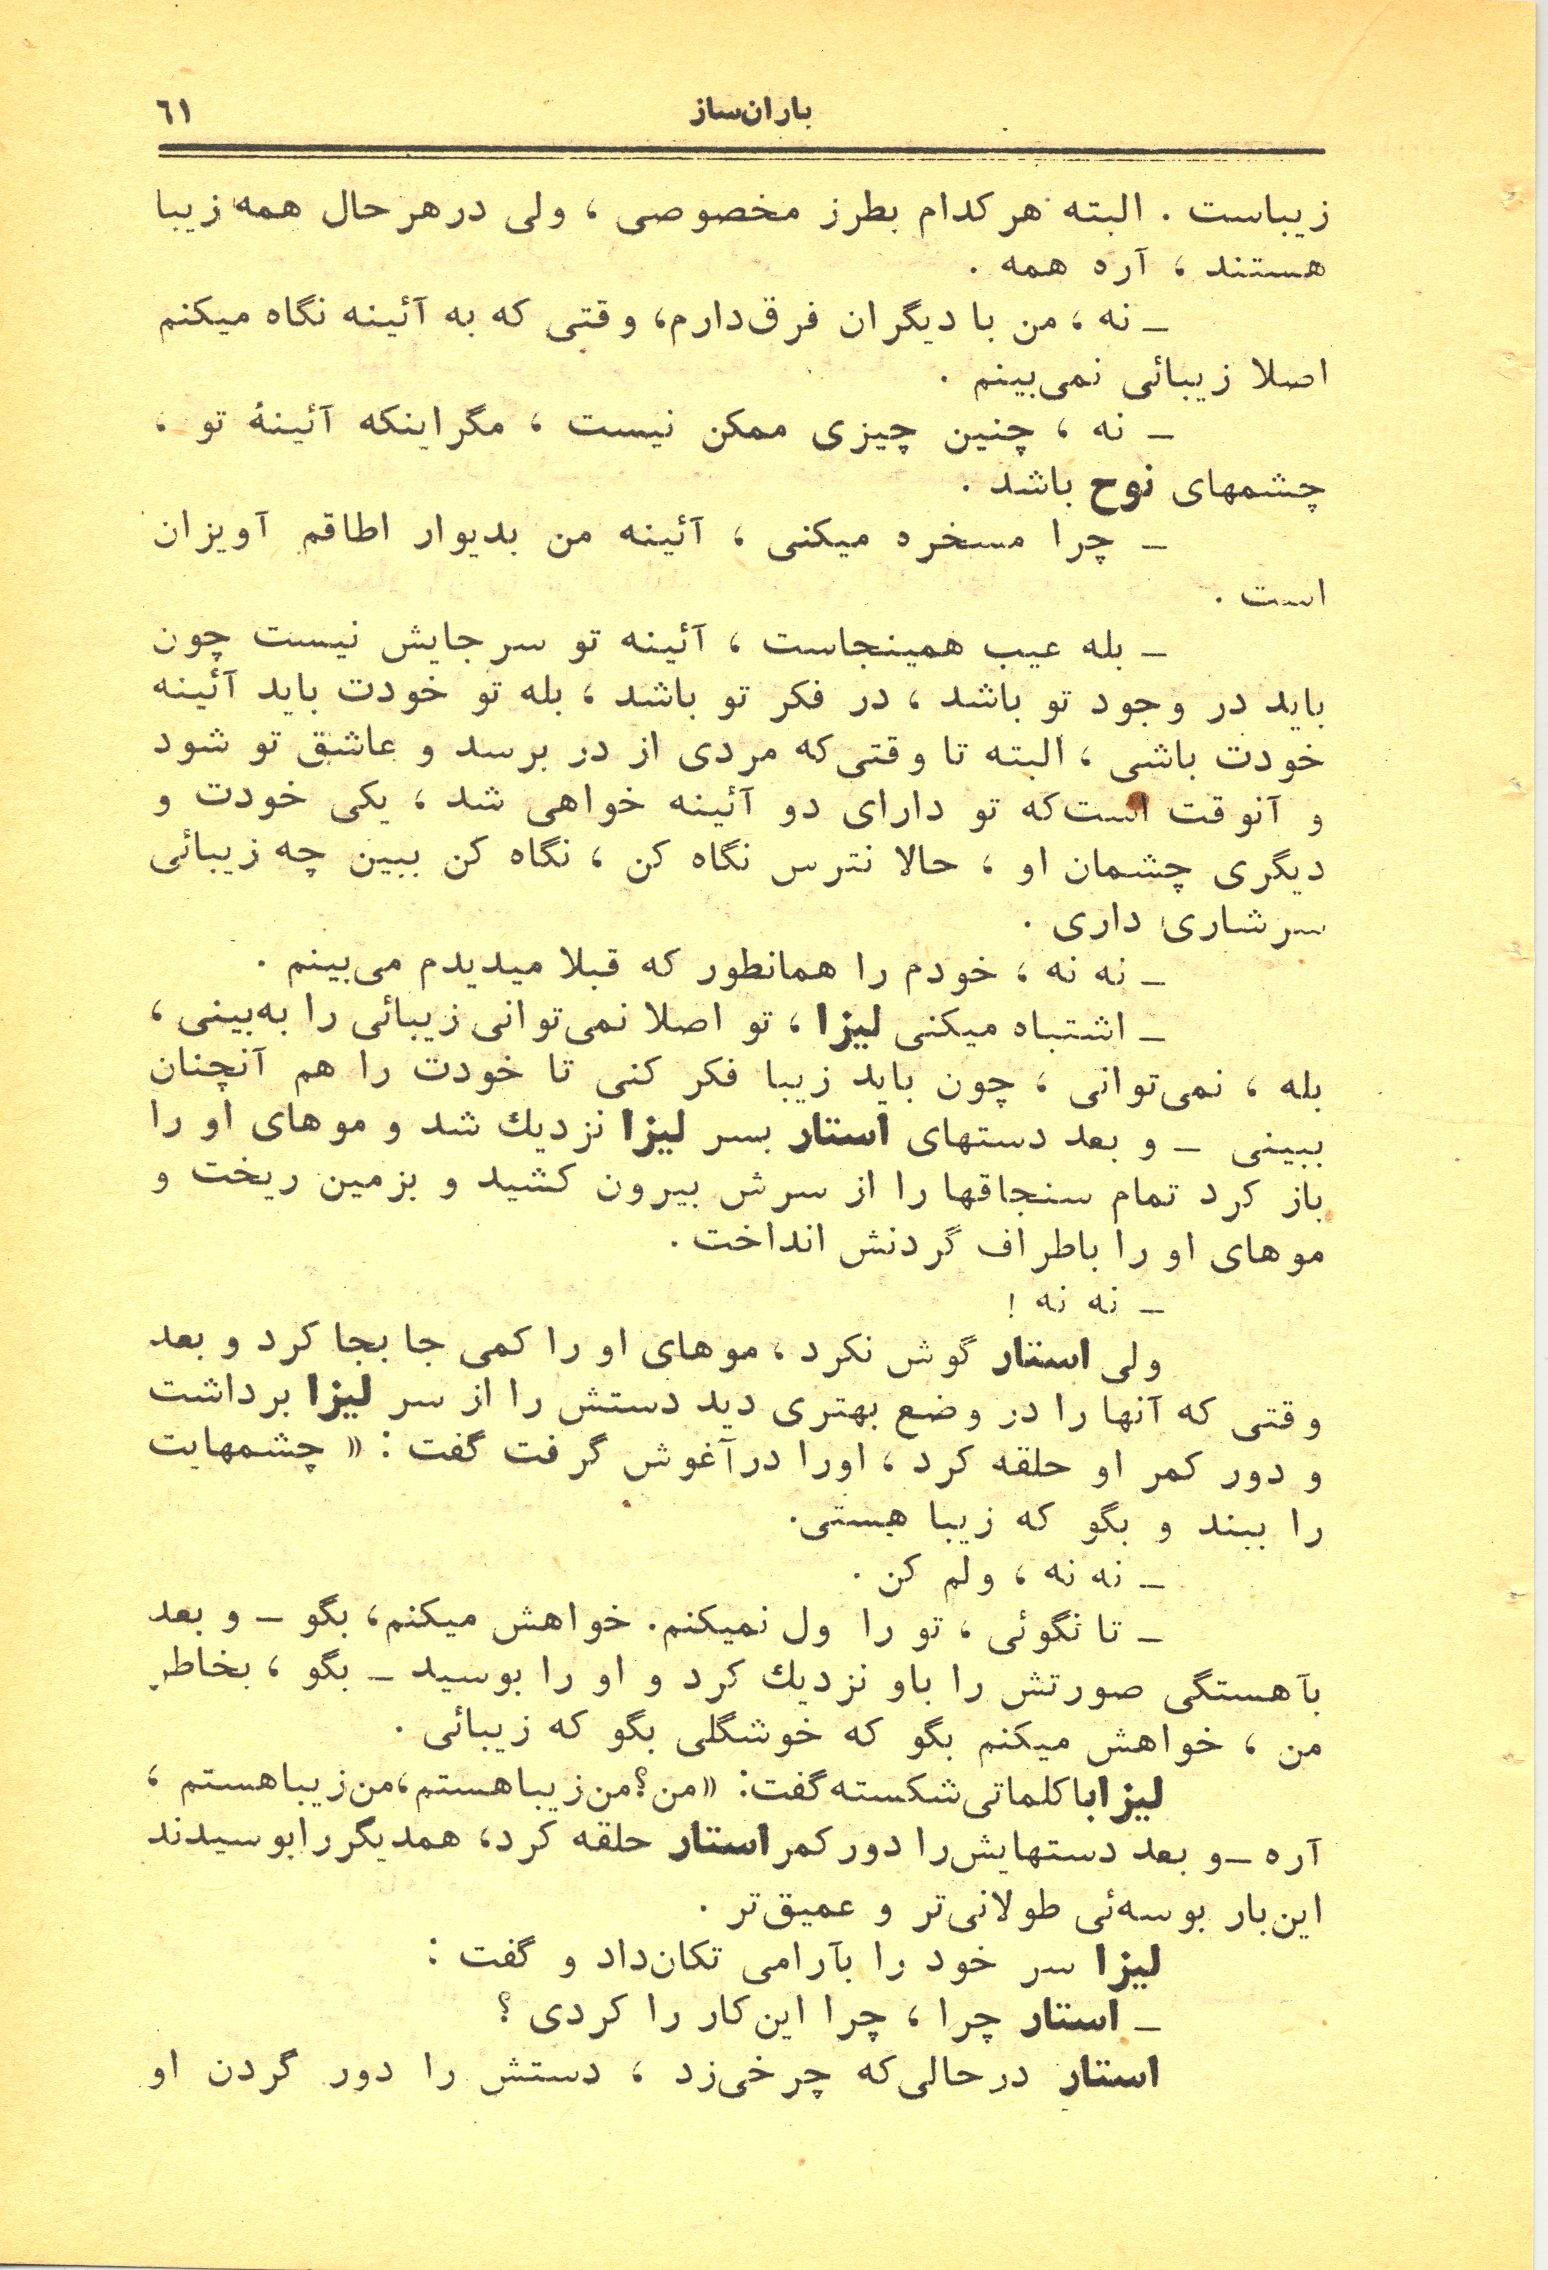 باران‌ساز ٦١
زیباست . البته هرکدام بطرز مخصوصی ، ولی درهرحال همه زیبا
هستند ، آره همه .
ـ نه ، من با دیگران فرق‌دارم، وقتی که به آئینه نگاه میکنم
اصلا زیبائی نمی‌بینم .
ـ نه ، چنین چیزی ممکن نیست ، مگراینکه آئینهٔ تو ،
چشمهای نوح باشد .
ـ چرا مسخره میکنی ، آئینه من بدیوار اطاقم آویزان
است .
ـ بله عیب همینجاست ، آئینه تو سرجایش نیست چون
باید در وجود تو باشد ، در فکر تو باشد ، بله تو خودت باید آئینه
خودت باشی ، البته تا وقتی‌که مردی از در برسد و عاشق تو شود
و آنوقت است‌که تو دارای دو آئینه خواهی شد ، یکی خودت و
دیگری چشمان او ، حالا نترس نگاه کن ، نگاه کن ببین چه زیبائی
سرشاری داری .
ـ نه نه ، خودم را همانطور که قبلا میدیدم می‌بینم .
ـ اشتباه میکنی لیزا ، تو اصلا نمی‌توانی زیبائی را به‌بینی ،
بله ، نمی‌توانی ، چون باید زیبا فکر کنی تا خودت را هم آنچنان
ببینی ـ و بعد دستهای استار بسر لیزا نزدیك شد و موهای او را
باز کرد تمام سنجاقها را از سرش بیرون کشید و بزمین ریخت و
موهای او را باطراف گردنش انداخت .
ـ نه نه !
ولی استار گوش نکرد ، موهای او را کمی جا بجا کرد و بعد
وقتی که آنها را در وضع بهتری دید دستش را از سر لیزا برداشت
و دور کمر او حلقه کرد ، اورا درآغوش گرفت گفت : « چشمهایت
را ببند و بگو که زیبا هستی.
ـ نه نه ، ولم کن .
ـ تا نگوئی ، تو را ول نمیکنم. خواهش میکنم، بگو ـ و بعد
بآهستگی صورتش را باو نزدیك کرد و او را بوسید ـ بگو ، بخاطر
من ، خواهش میکنم بگو که خوشگلی بگو که زیبائی .
لیزا باکلماتی‌شکسته‌گفت: «من؟من‌زیباهستم،من‌زیباهستم ،
آره ـ و بعد دستهایش‌را دورکمر استار حلقه کرد، همدیگررابوسیدند
این‌بار بوسه‌ئی طولانی‌تر و عمیق‌تر .
لیزا سر خود را بآرامی تکان‌داد و گفت :
ـ استار چرا ، چرا این‌کار را کردی ؟
استار درحالی‌که چرخی‌زد ، دستش را دور گردن او